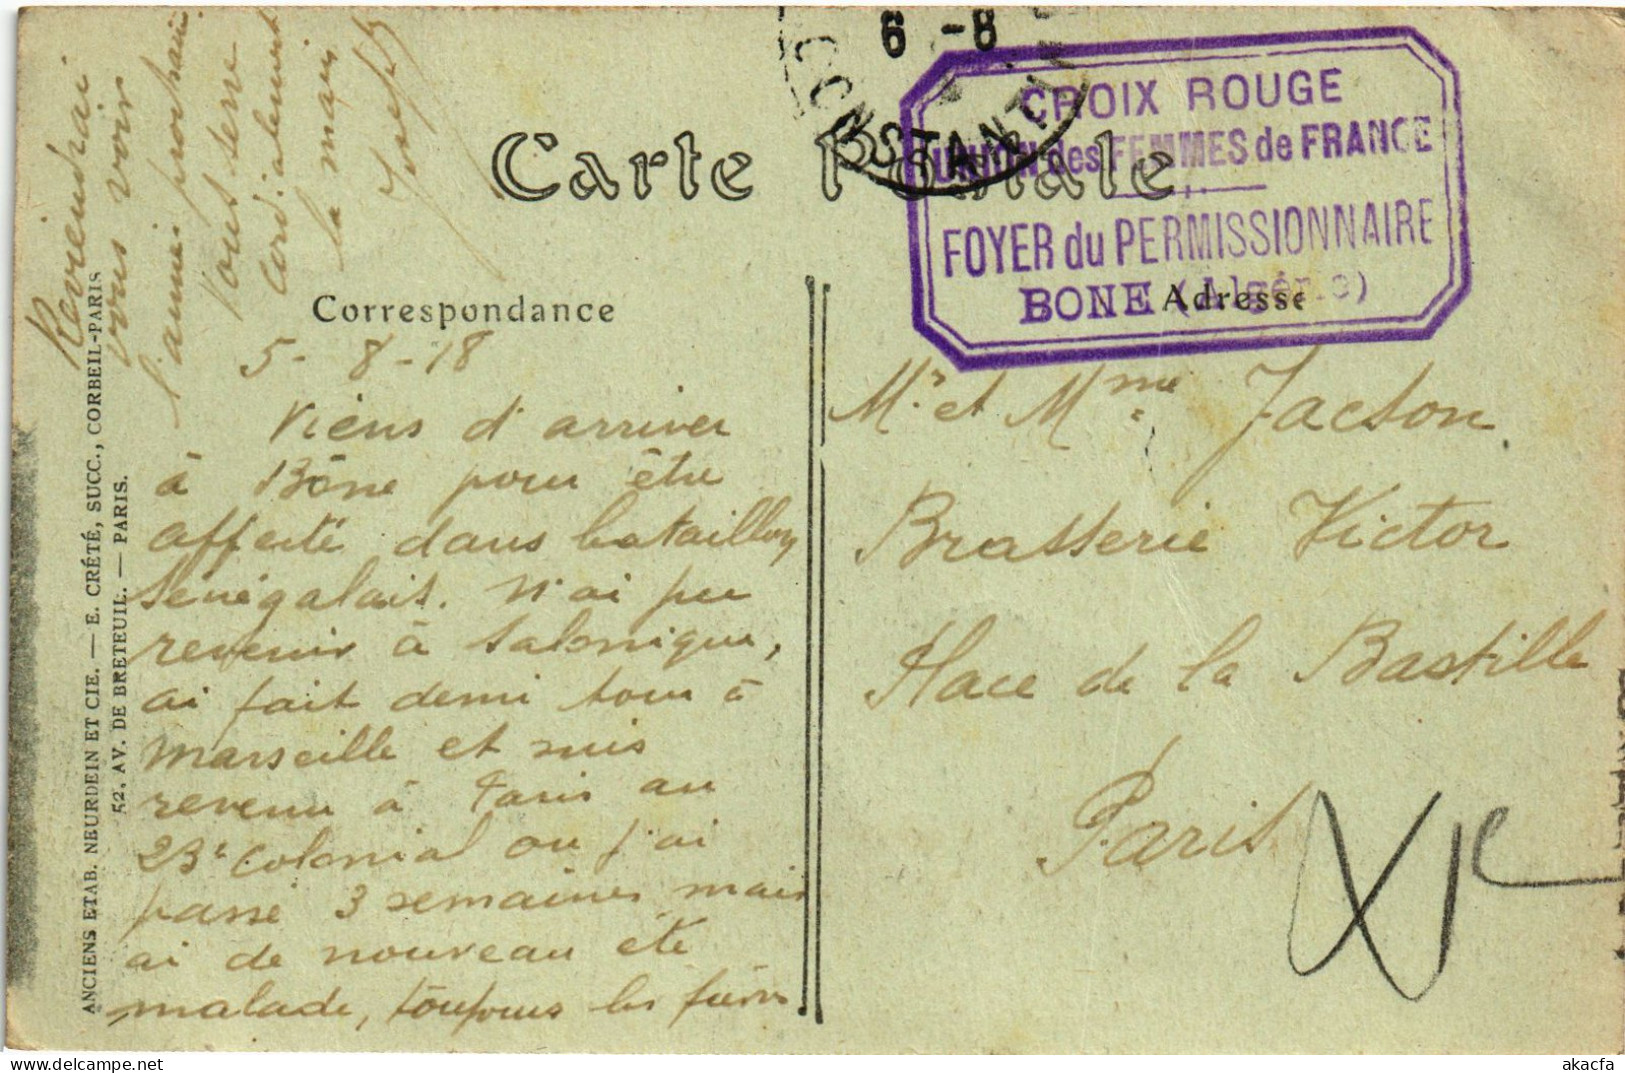 6 -8
CONSTANTINE
CROIX ROUGE
UNION des FEMMES de FRANCE
FOYER du PERMISSIONNAIRE
BONE (Algérie)
Carte Postale
Correspondance
Adresse
5-8-18
Viens d'arriver
à Bône pour être
affecté dans bataillon
Sénégalais. N'ai pu
revenir à Salonique,
ai fait demi tour à
Marseille et suis
revenu à Paris au
23e Colonial ou j'ai
passé 3 semaines mais
ai de nouveau été
malade, toujours les fièvres
Reviendrai
vous voir
l'année prochaine
Vous serre
cordialement
la main
Joseph
Mr et Mme Jacson
Brasserie Victor
Place de la Bastille
Paris
XIe
ANCIENS ETAB. NEURDEIN ET CIE. — E. CRÉTÉ, SUCC., CORBEIL-PARIS
52, AV. DE BRETEUIL. — PARIS.
akacfa